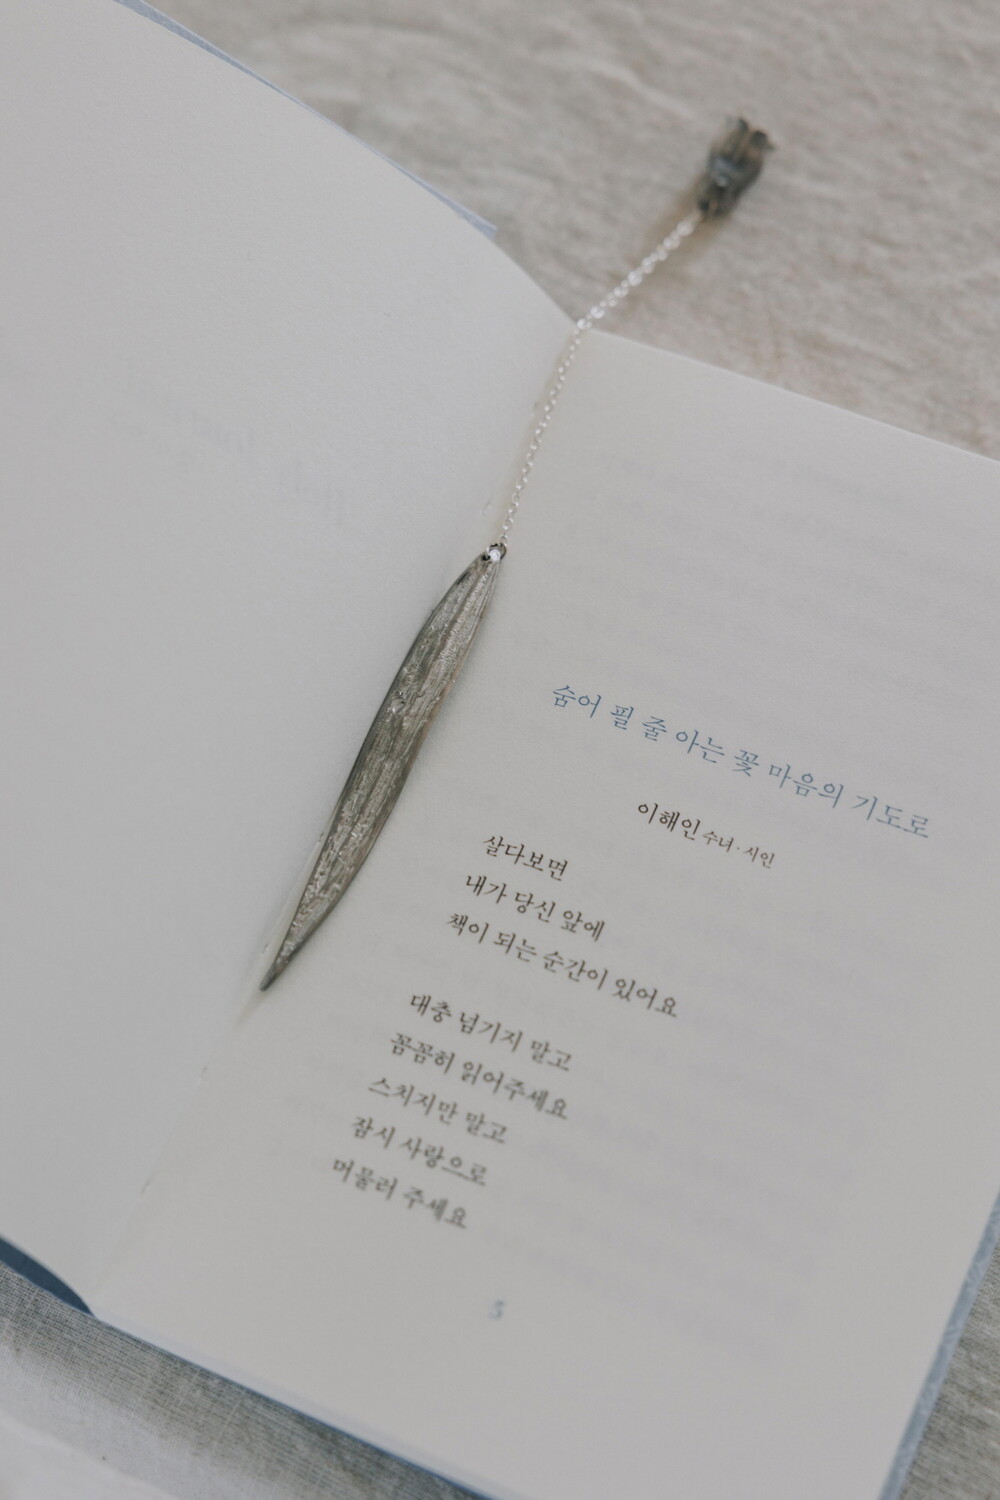 숨어 필 줄 아는 꽃 마음의 기도로
이해인 수녀·시인
살다보면
내가 당신 앞에
책이 되는 순간이 있어요
대충 넘기지 말고
꼼꼼히 읽어주세요
스치지만 말고
잠시 사랑으로
머물러 주세요
5